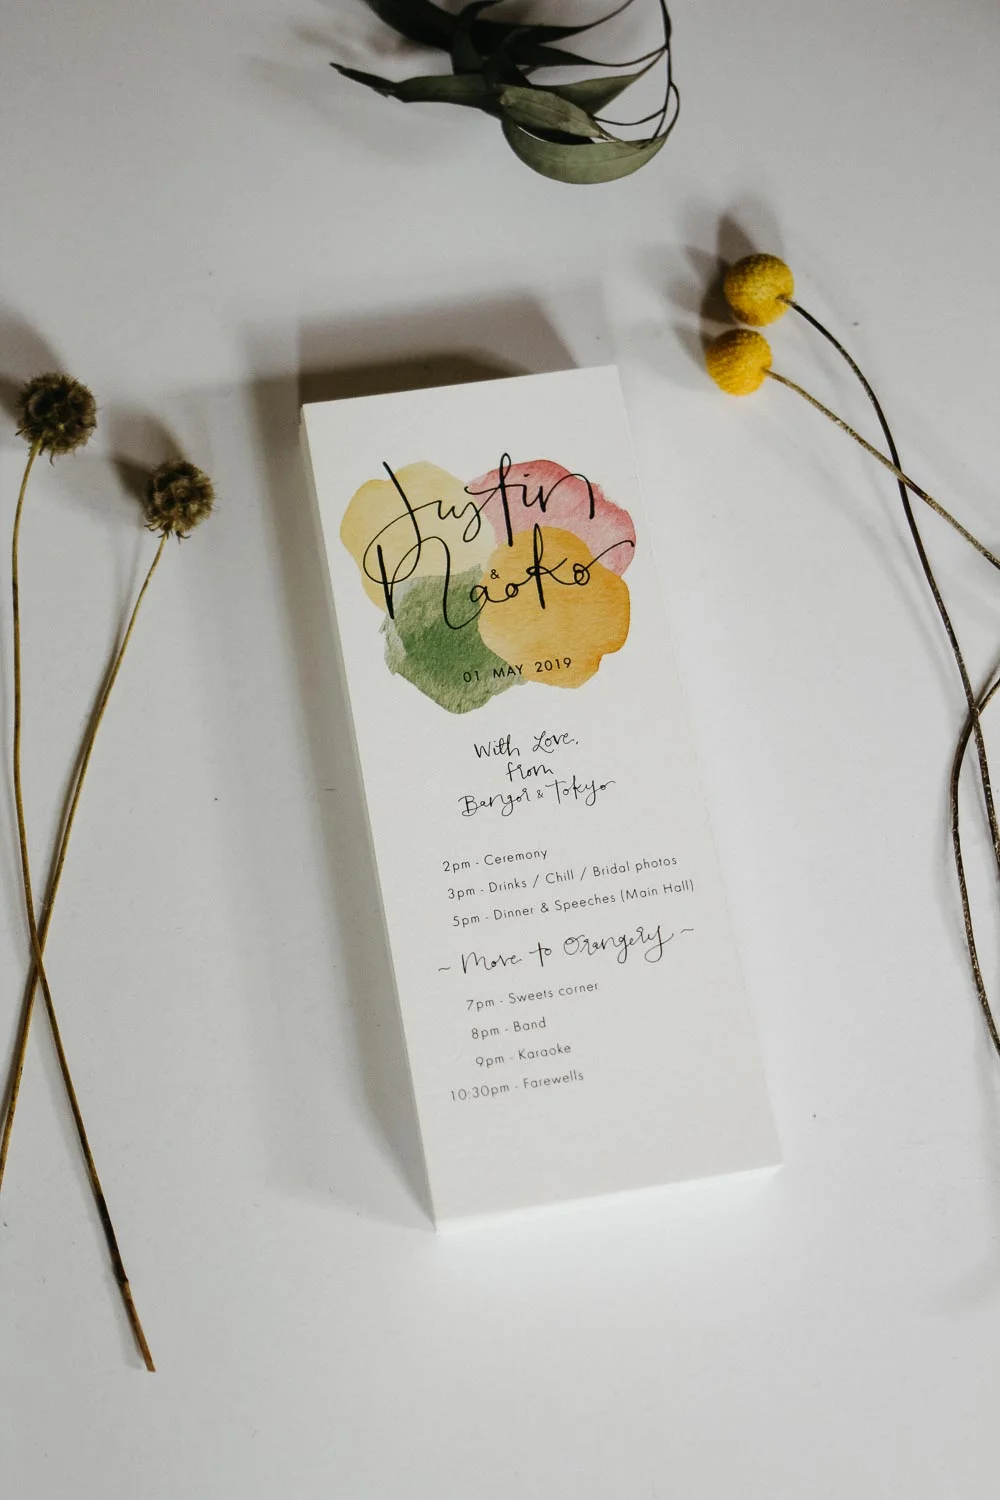 Justin
&
Naoko
01 MAY 2019
With Love,
from
Bangor & Tokyo
2pm - Ceremony
3pm - Drinks / Chill / Bridal photos
5pm - Dinner & Speeches (Main Hall)
~ Move to Orangery ~
7pm - Sweets corner
8pm - Band
9pm - Karaoke
10:30pm - Farewells